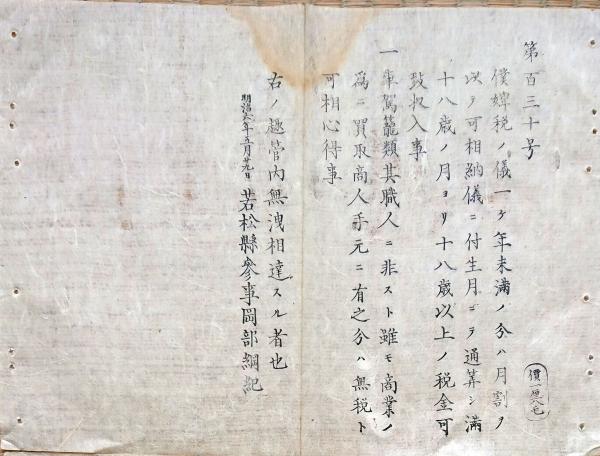 第百三十号
僕婢税ノ儀一ケ年未満ノ分ハ月割ヲ
以テ可相納儀ニ付生月ゟヲ通算シ満
十八歳ノ月ヨリ十八歳以上ノ税金可
致収入事
一車駕籠類其職人ニ非スト雖モ商業ノ
為ニ買取商人手元ニ有之分ハ無税ト
可相心得事
右ノ趣管内無洩相達スル者也
明治六年五月廿九日 若松縣参事岡部綱紀
價一厘八毛